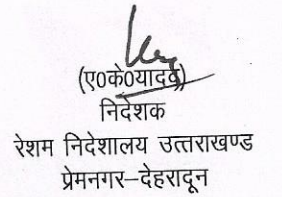 (ए०के०यादव)
निदेशक
रेशम निदेशालय उत्तराखण्ड
प्रेमनगर–देहरादून